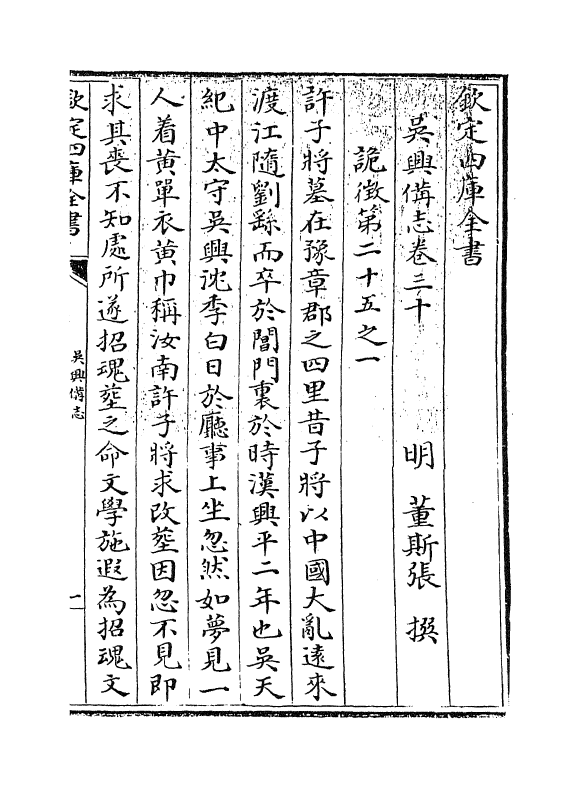 欽定四庫全書
吳興備志卷三十
明 董斯張 撰
詭徵第二十五之一
許子將墓在豫章郡之四里昔子將以中國大亂遠來
渡江隨劉繇而卒於閶門裏於時漢興平二年也吳天
紀中太守吳興沈季白日於廳事上坐忽然如夢見一
人着黃單衣黃巾稱汝南許子將求改塟因忽不見即
求其喪不知處所遂招魂塟之命文學施遐為招魂文
欽定四庫全書
吳興備志
一